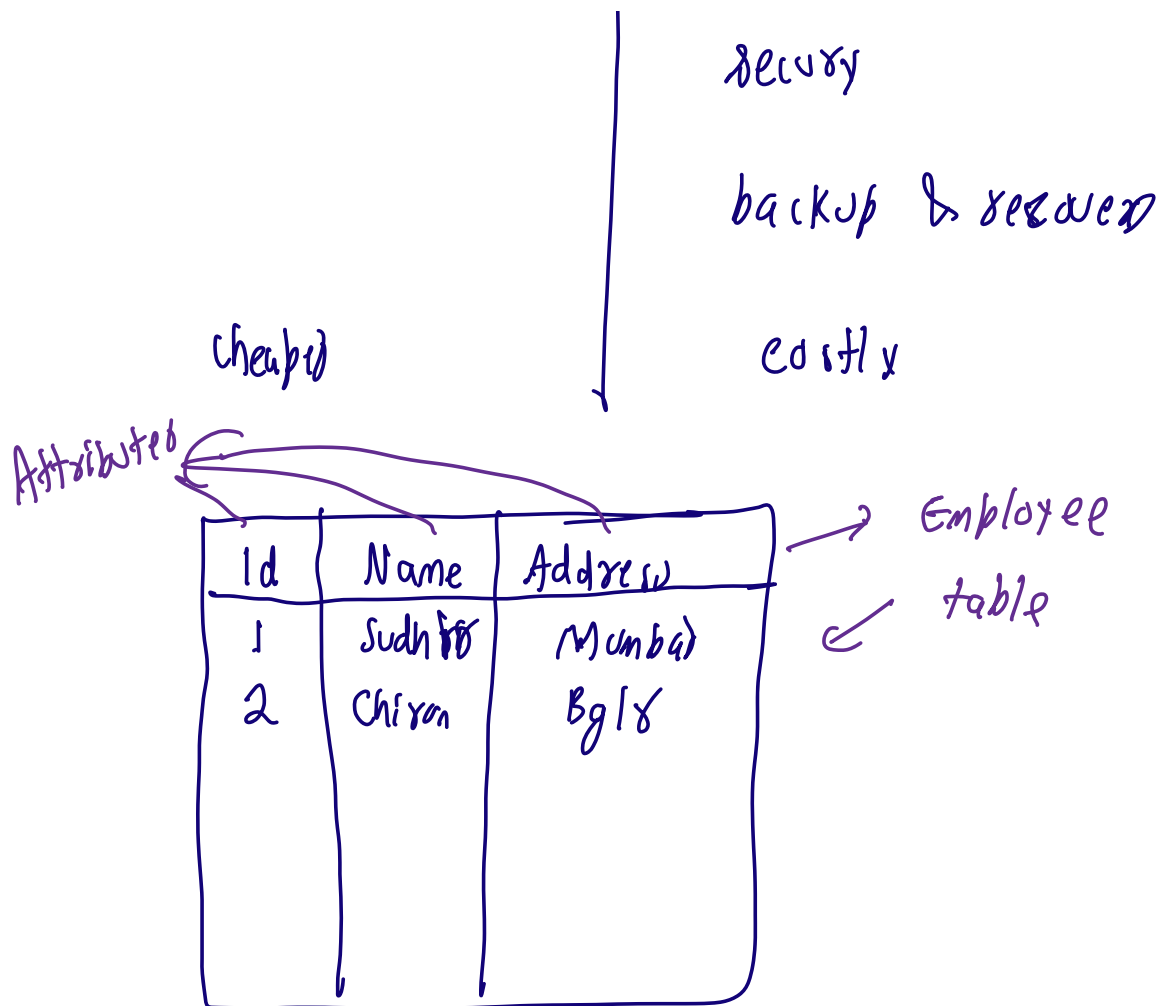 secury
backup & recovery
cheaper
costly
Attributes
Employee
table
Id Name Address
1 Sudhir Mumbai
2 Chiran Bglr